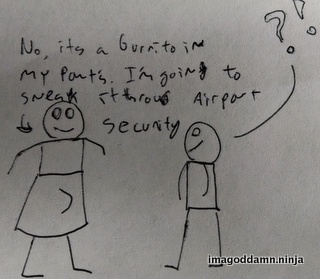 ? ?
No, its a burrito in
my pants. I'm going to
sneak it throu Airport
security
imagoddamn.ninja